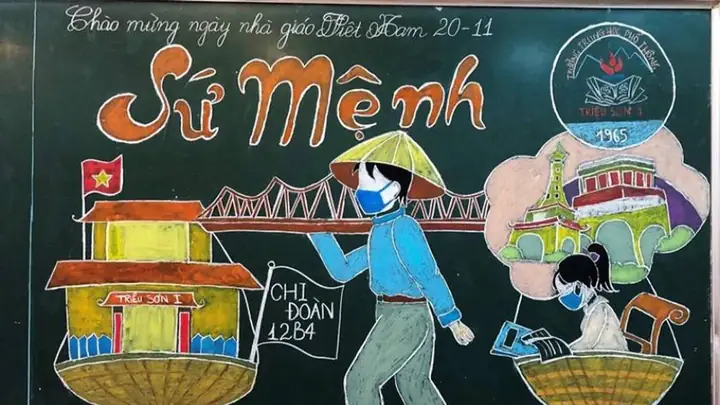 Chào mừng ngày nhà giáo Việt Nam 20-11
Sứ Mệnh
TRƯỜNG TRUNG HỌC PHỔ THÔNG
TRIỆU SƠN 1
1965
TRIỆU SƠN I
CHI
ĐOÀN
12B4